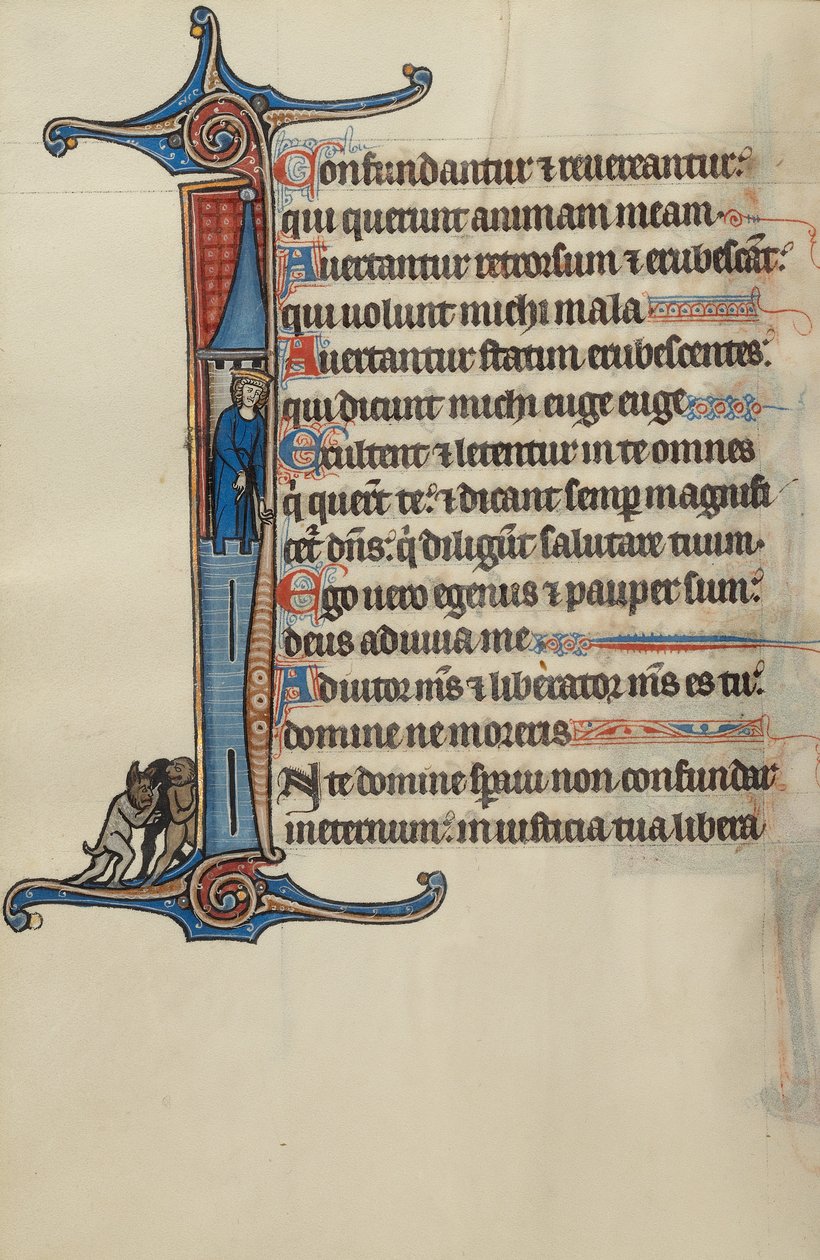 Confundantur ⁊ reuereantur:
qui querunt animam meam.
Auertantur retrorsum ⁊ erubescāt:
qui uolunt michi mala
Auertantur statim erubescentes:
qui dicunt michi euge euge
Exultent ⁊ letentur in te omnes
q̇ querūt te: ⁊ dicant semꝑ magnifi
cet᷑ dn̄s: q̇ diligūt salutare tuum.
Ego uero egenus ⁊ pauper sum:
deus adiuua me
Adiutor m̄s ⁊ liberator m̄s es tu:
domine ne moreris
IN te domine sꝑaui non confundar
in eternum: in iusticia tua libera